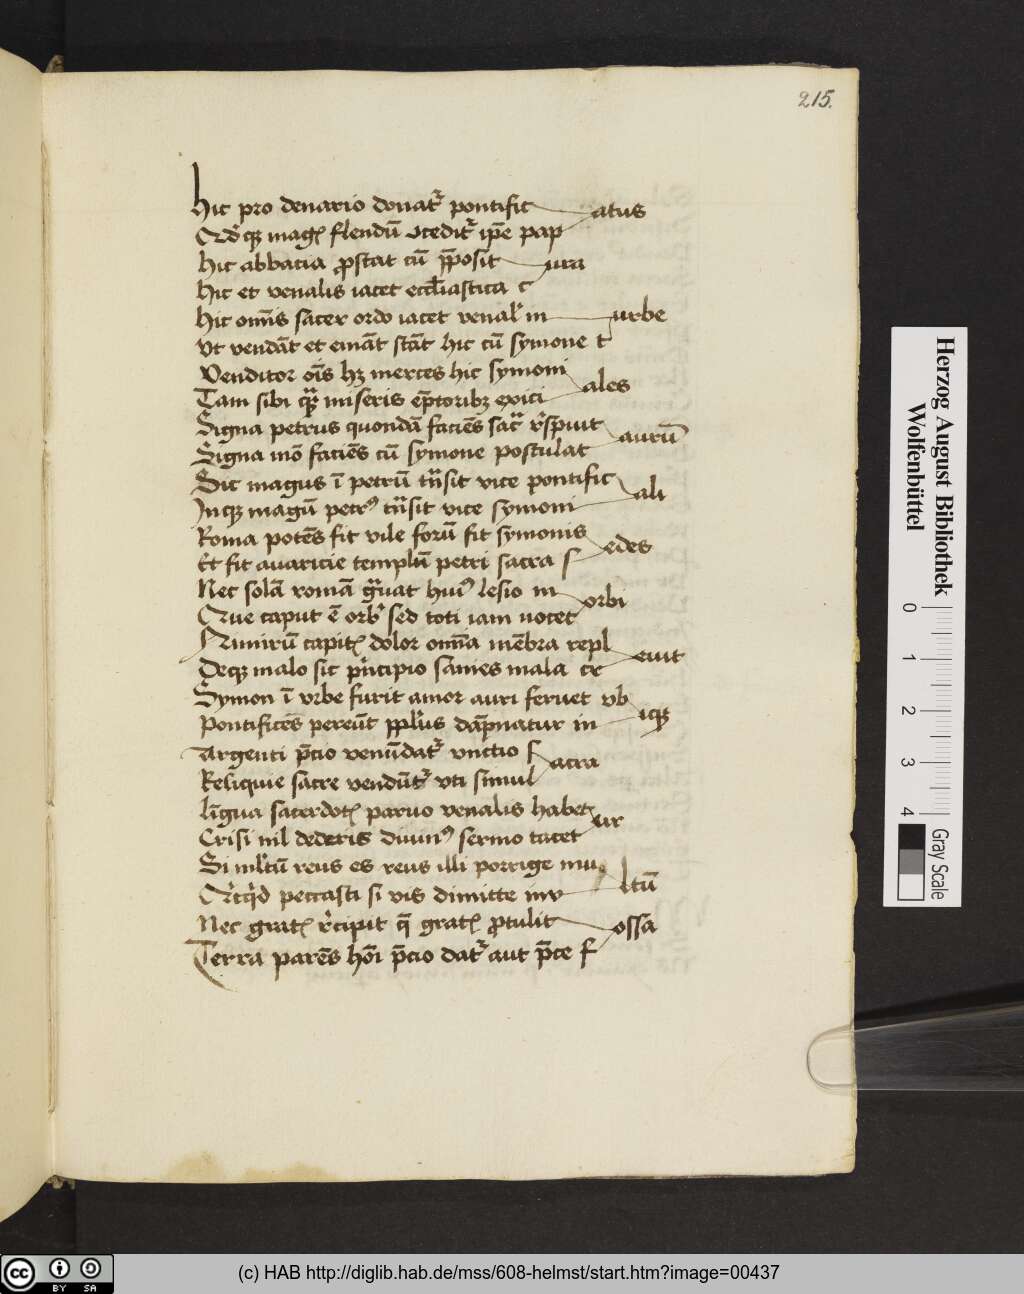 215.
Hic pro denario donat᷑ pontific atus
flendū ipē pap
Hic abbacia ꝓstat cū p̄posit ura
Hic et venalis iacet eccl̄iastica c
Hic om̄s sacer ordo iacet venal᷑ in urbe
Ut vendāt et emāt stāt hic cū symone t
Venditor oīs hꝫ merces hic symoni ales
Tam sibi miseris exici
Signa petrus quondā faciēs aurū
Signa mō faciēs cū symone postulat
Sic magus ī petrū tn̄sit vice pontific ali
Inqꝫ magū petrꝰ tn̄sit vice symoni
Roma potēs fit vile forū fit symonis edes
Et fit auaricie templū petri sacra s
Nec solā romā huiꝰ lesio m orbi
Que caput ē orb᷑ sed toti iam nocet
Nimirū dolor om̄ia mēbra repl euit
Deqꝫ malo sic pͥncipio sanies mala cr
Symon ī vrbe furit amor auri feruet vb iqꝫ
Pontificēs pereūt dāpnatur in
Argenti p̄cio venūdat᷑ vnctio s acra
Reliquie sacre vendūt᷑ vti simul
Līgua parvo venalis habet ur
Crisi nil dederis diuinꝰ sermo tacet
Si ml̄tū reus es reus illi porrige mu ltū
peccasti si vis dimitte mu
Nec q̄ ꝓtulit ossa
Terra parēs hoī p̄cio dat᷑ aut p̄ce f
Herzog August Bibliothek
Wolfenbüttel
0 1 2 3 4
Gray Scale
cc BY SA
(c) HAB http://diglib.hab.de/mss/608-helmst/start.htm?image=00437